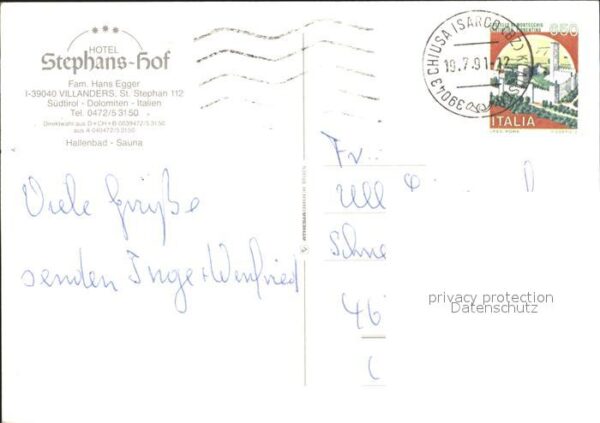 HOTEL
Stephans-Hof
Fam. Hans Egger
I-39040 VILLANDERS, St. Stephan 112
Südtirol - Dolomiten - Italien
Tel. 0472/53150
Direktwahl aus D+CH+B 0039472/53150
aus A 040472/53150
Hallenbad - Sauna
39043 CHIUSA (ISARCO) (BZ)
19.7.91-12
650
ITALIA
Viele Grüße
senden Inge + Winfried
Fr
Ull
Schne
46
privacy protection
Datenschutz